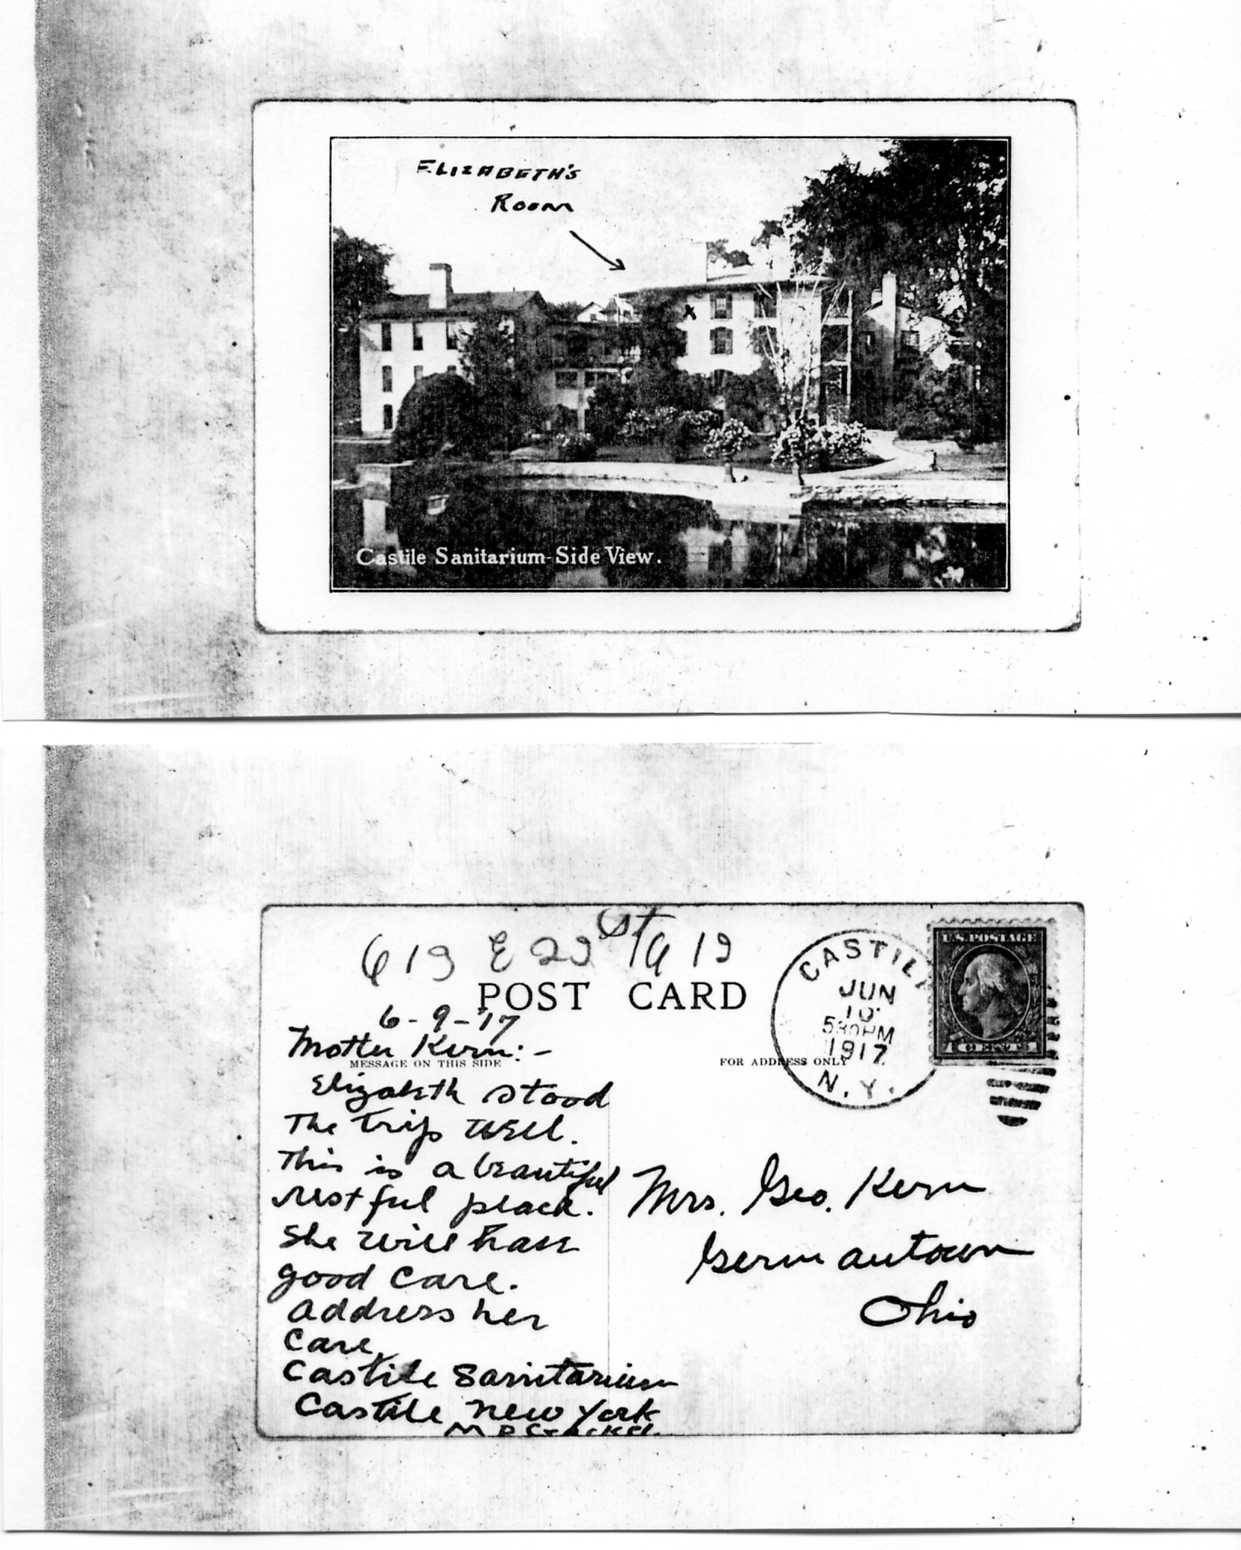 ELIZABETH'S
Room
x
Castile Sanitarium-Side View.
619 E 29 St
POST CARD
6-9-'17
Mother Kern:-
MESSAGE ON THIS SIDE
FOR ADDRESS ONLY
Elizabeth stood
The trip well.
This is a beautiful
restful place.
She will have
good care.
address her
Care,
Castile Sanitarium
Castile New York
CASTILE
JUN
10
530PM
1917
N.Y.
U.S. POSTAGE
1 CENT 1
Mrs. Geo. Kern
Germantown
Ohio